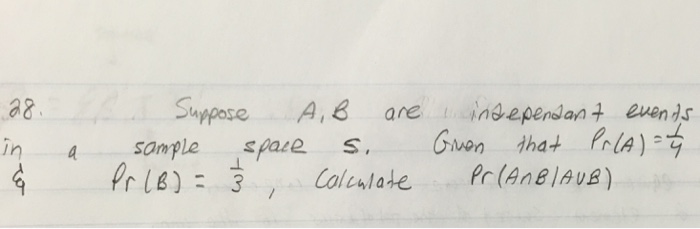 28. Suppose A, B are independant events
in a sample space S. Given that Pr(A) = 1/4
& Pr(B) = 1/3, Calculate Pr(A∩B|A∪B)